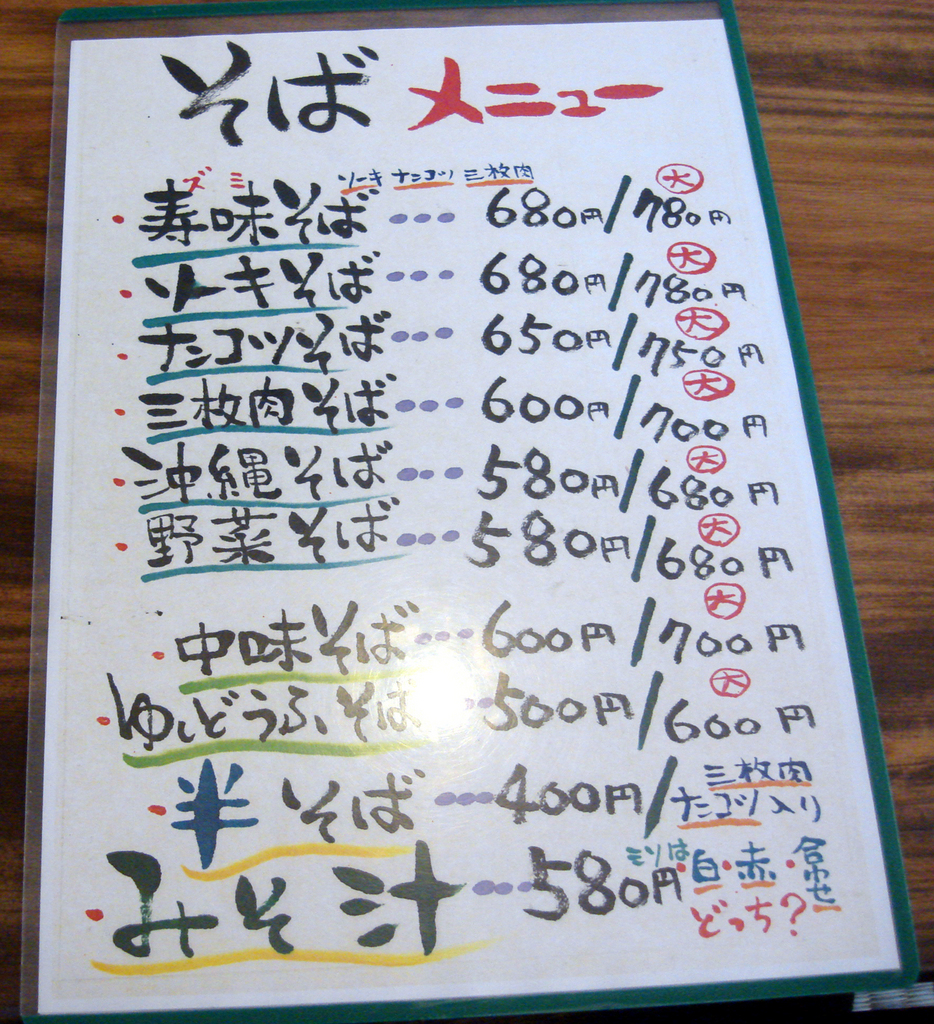 そば メニュー
ズミ ソーキ ナンコツ 三枚肉
・寿味そば・・・680円/780円 大
・ソーキそば・・・680円/780円 大
・ナンコツそば・・・650円/750円 大
・三枚肉そば・・・600円/700円 大
・沖縄そば・・・580円/680円 大
・野菜そば・・・580円/680円 大
・中味そば・・・600円/700円 大
・ゆしどうふそば・・・500円/600円 大
・半そば・・・400円/三枚肉 ナンコツ入り
・みそ汁・・・580円 ミソは 白・赤・合わせ どっち?